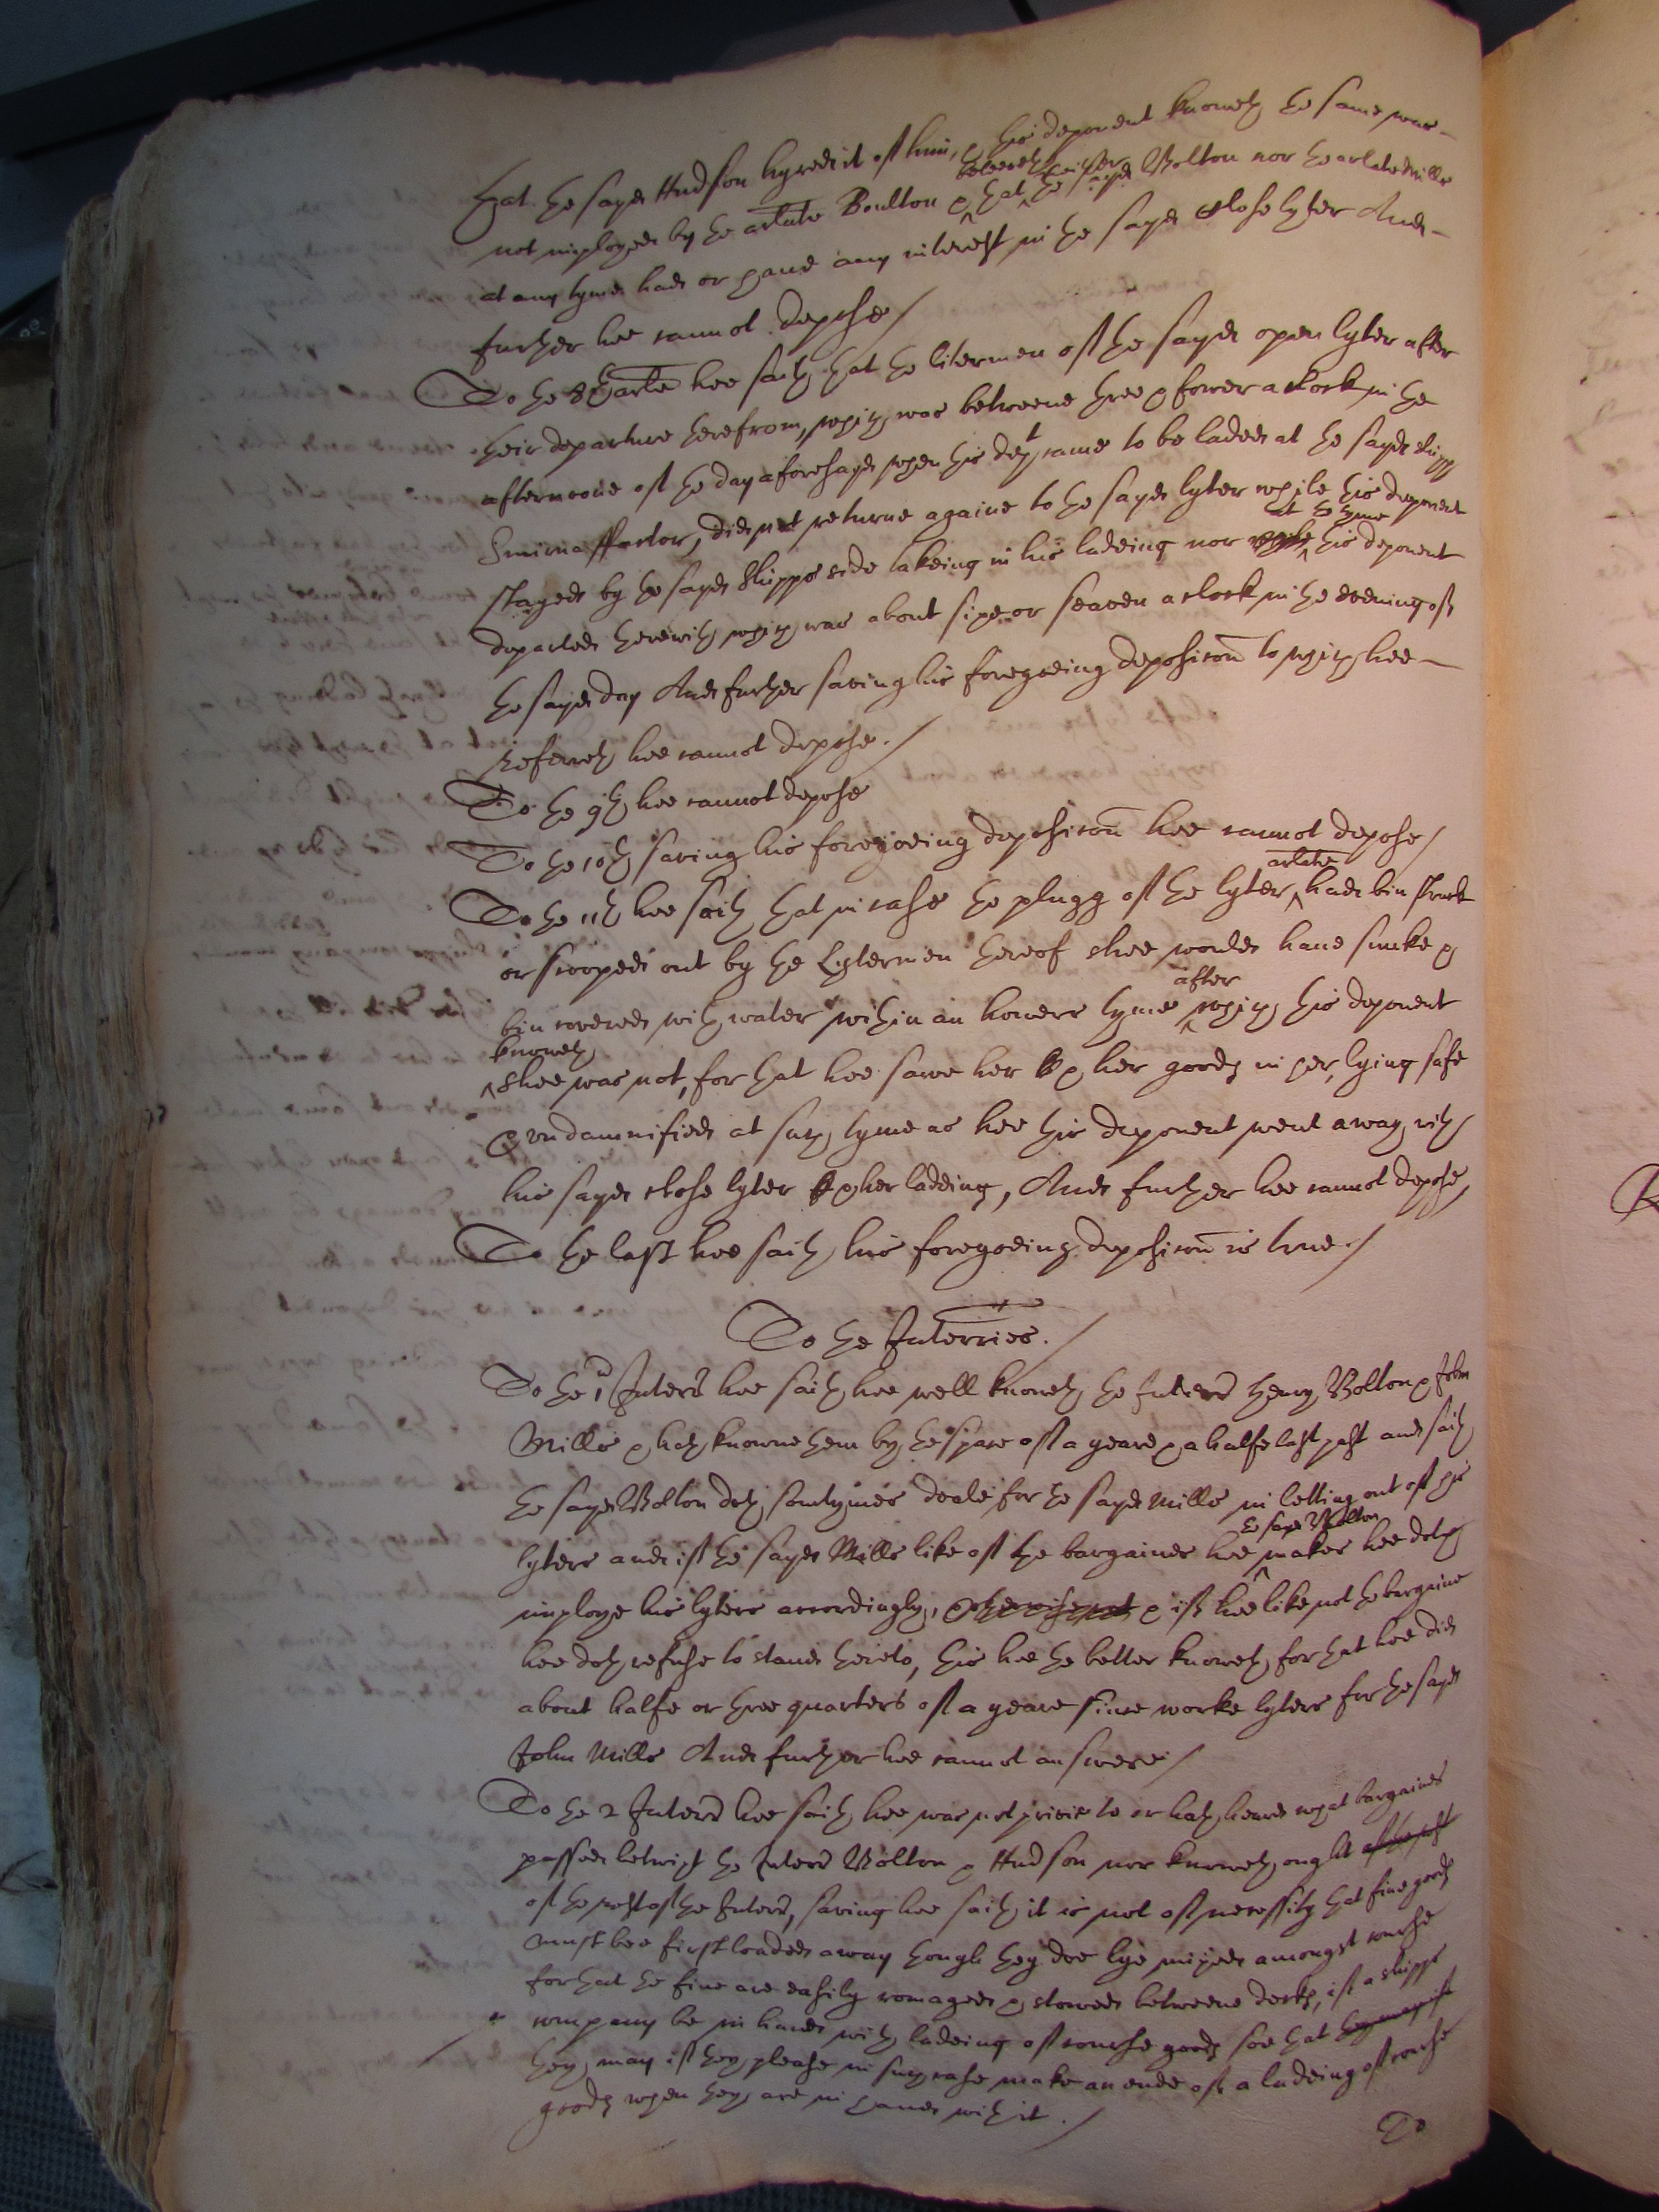 that the sayd Hudson hyred it of him, & this deponent knoweth the same was
not imployed by the arlate Boulton & beleeveth that neither the sayd Bolton nor the arlate Mills
at any tyme had or have any interest in the sayd close lyter And
further hee cannot depose /
To the 8th arle hee saith that the litermen of the sayd open lyter after
their departure therefrom, which was betweene three & fower a clock in the
afternoone of the day aforesayd when this dept came to be laded at the sayd shipp
Smirna ffactor, did not returne againe to the sayd lyter while this deponent
stayed by the sayd shipps side takeing in his ladeing nor while at the tyme this deponent
departed therewith which was about sixe or seaven a clock in the evening of
the sayd day And further saving his foregoeing deposicon to which hee
referreth hee cannot depose. /
To the 9th hee cannot depose
To the 10th saving his foregoeing deposicon hee cannot depose /
To the 11th hee saith that in case the plugg of the lyter arlate had bin struck
or scooped out by the Lytermen thereof shee would have sunke &
bin covered with water within an howers tyme after which this deponent
knoweth shee was not, for that hee sawe her & her goods in her, lying safe
& undamnified at such tyme as hee this deponent went away with
his sayd close lyter & her ladeing, And further hee cannot depose,
To the last hee saith his foregoeing deposicon is true. /
To the Interries. /
To the 1 Interr hee saith hee well knoweth the Interr Henry Bolton & John
Mills & hath knowne them by the space of a yeare & a halfe last past and saith
the sayd Bolton doth somtymes deale for the sayd Mills in letting out of his
lyters and if the sayd Mills like of the bargaines hee the sayd Bolton makes hee doth
imploye his lyters accordingly, & otherwise not & if hee like not the bargaine
hee doth refuse to stand thereto, this hee the better knoweth for that hee did
about halfe or three quarters of a yeare since worke lyters for the sayd
John Mills And further hee cannot answere /
To the 2 Interr hee saith hee was not privie to or hath heard what bargaines
passed betwixt the Interr Bolton & Hudson nor knoweth ought of the rest
of the rest of the Interr, saving hee saith it is not of necessity that fine goods
must bee first loaded away though they doe lye mixed amongst course
for that the fine are easily romaged & stowed betweene decks, if a shipps
company be in hand with ladeing of course goods soe that they may if
they may if they please in such case make an ende of a ladeing of course
goods when they are in hand with it. /
To